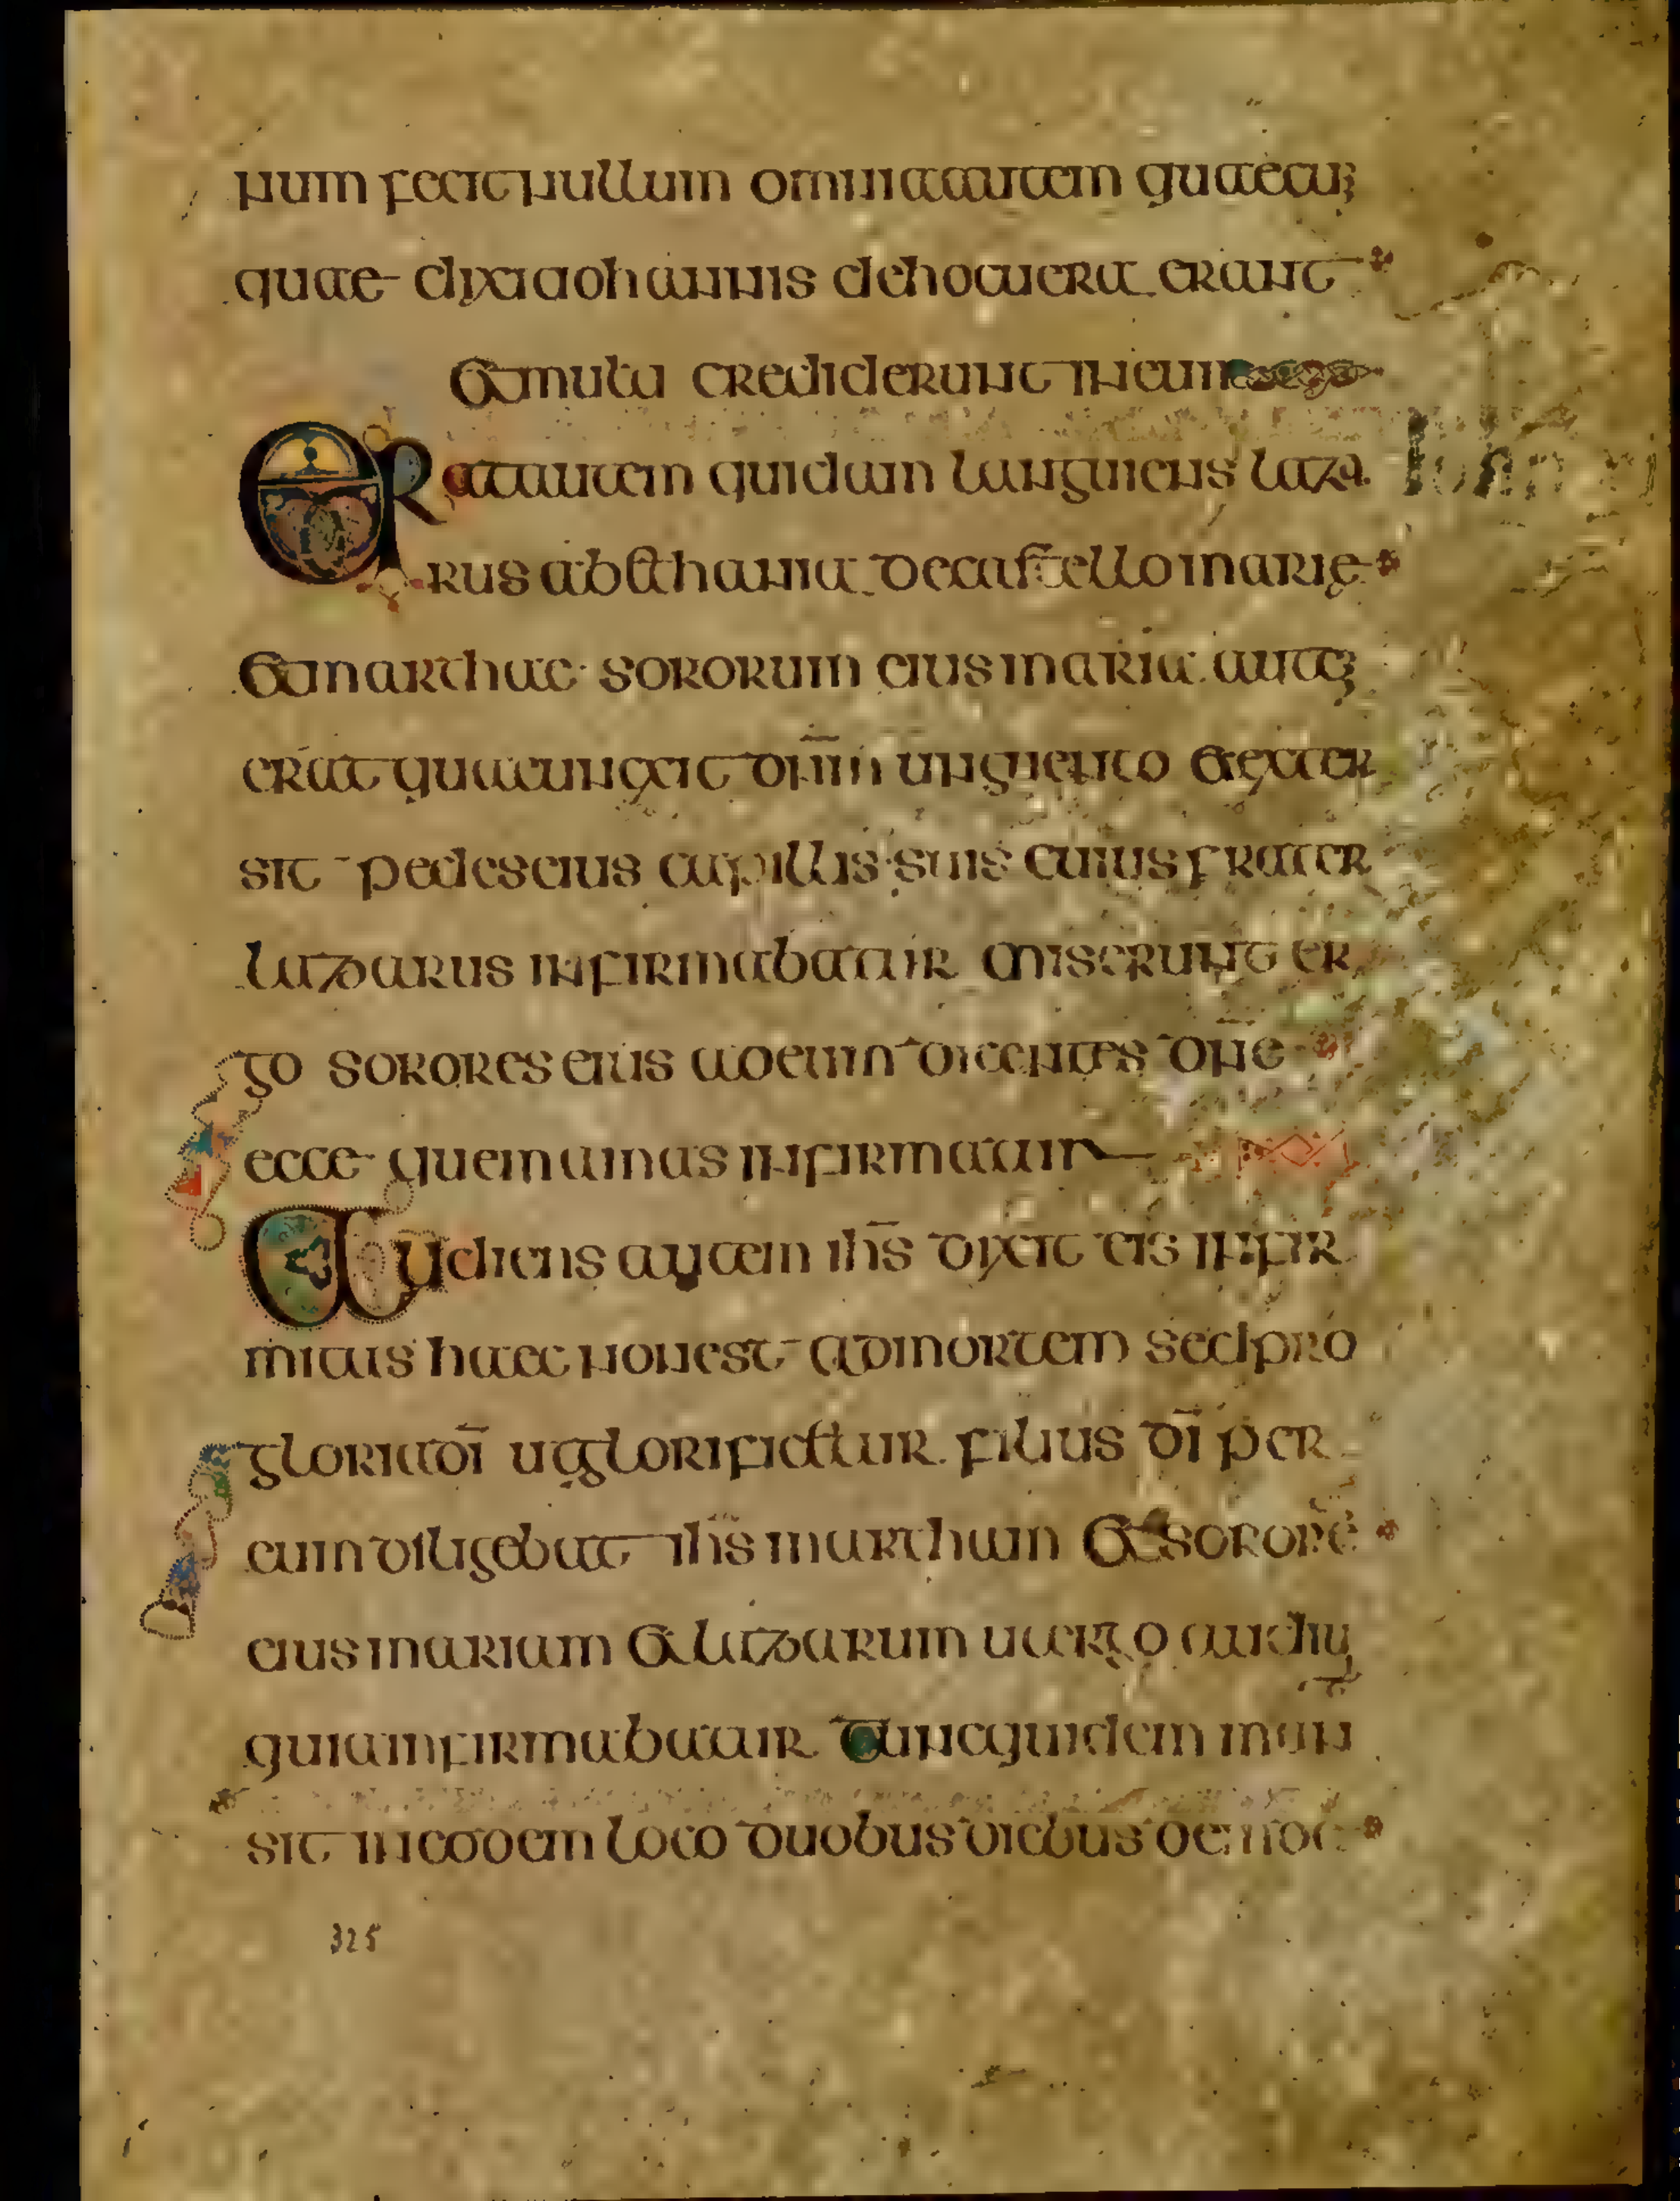 num fecit nullum omnia autem quaecu;
quae dixit iohannis de hoc uera erant
Et multi crediderunt in eum
ERat autem quidam languens laza
rus a bethania de castello marię
et marthae sororum eius maria aute;
erat quae unxit dn̄m unguento et exter
sit pedes eius capillis suis cuius frater
lazarus infirmabatur miserunt er
go sorores eius ad eum dicentes dn̄e
ecce quem amas infirmatur
Audiens autem ihs̄ dixit eis infir
mitas haec non est ad mortem sed pro
gloria dī ut glorificetur filius dī per
eum diligebat ihs̄ martham et sororē
eius mariam et lazarum ut ergo audiu
it
quia infirmabatur tunc quidem man
sit in eodem loco duobus diebus de
325